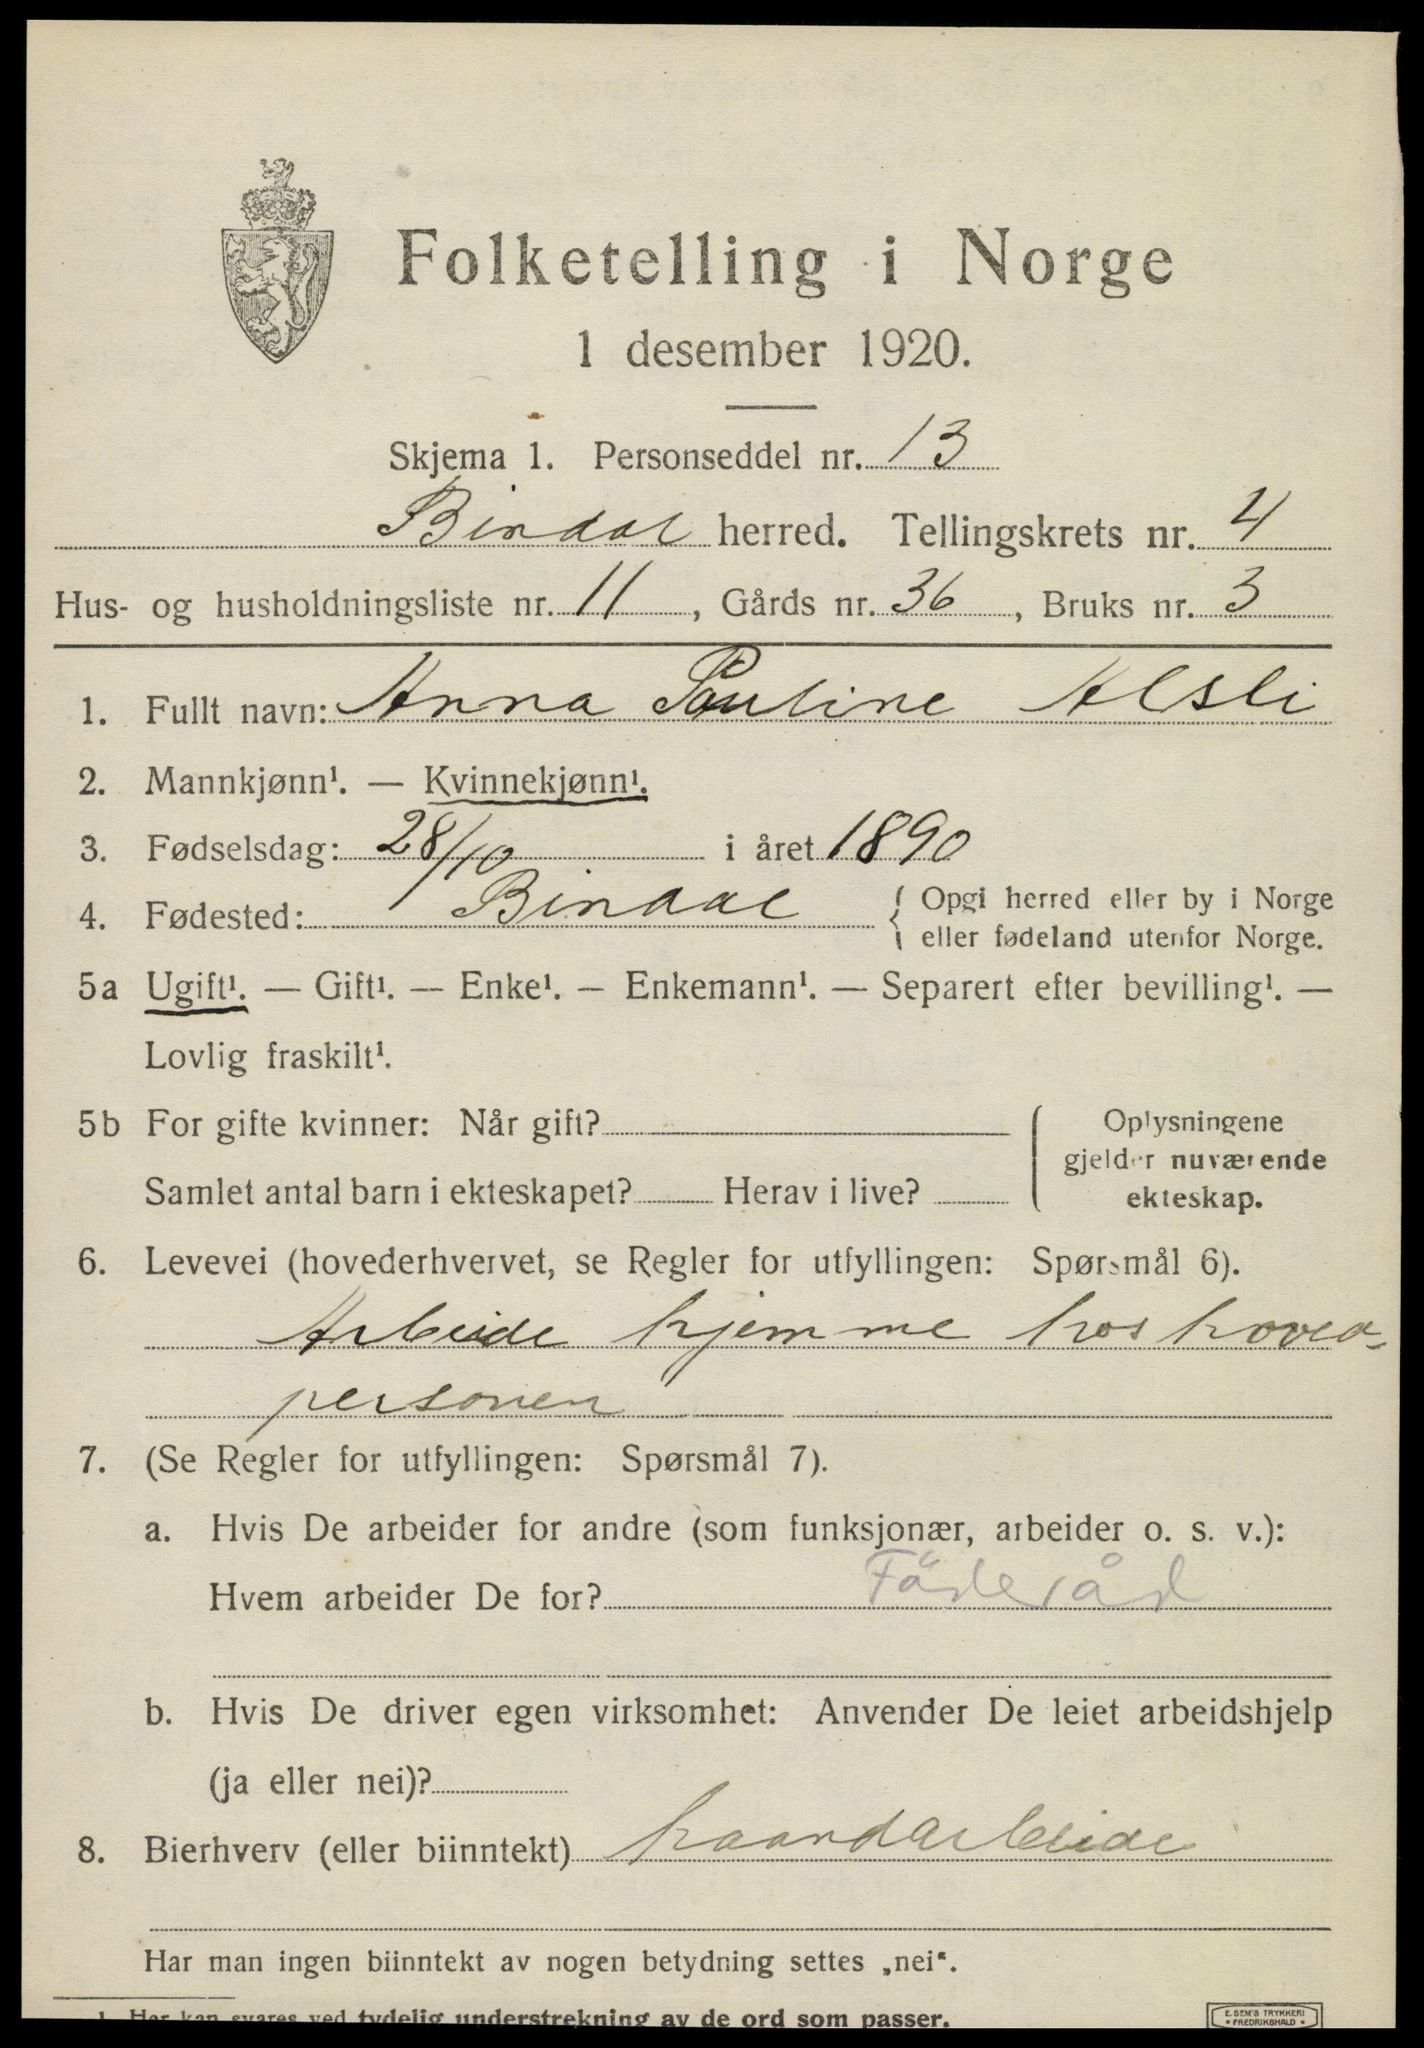 Folketelling i Norge
1 desember 1920.
Skjema 1. Personseddel nr. 13
Bindal herred. Tellingskrets nr. 4
Hus- og husholdningsliste nr. 11, Gårds nr. 36, Bruks nr. 3
1. Fullt navn: Anna Pauline Alsli
2. Mannkjønn¹. — Kvinnekjønn¹.
3. Fødselsdag: 28/10 i året 1890
4. Fødested: Bindal { Opgi herred eller by i Norge
eller fødeland utenfor Norge.
5a Ugift¹. — Gift¹. — Enke¹. — Enkemann¹. — Separert efter bevilling¹. —
Lovlig fraskilt¹.
5b For gifte kvinner: Når gift?
Samlet antal barn i ekteskapet? Herav i live?
Oplysningene
gjelder nuværende
ekteskap.
6. Levevei (hovederhvervet, se Regler for utfyllingen: Spørsmål 6).
Arbeide hjemme hos hoved-
personen
7. (Se Regler for utfyllingen: Spørsmål 7).
a. Hvis De arbeider for andre (som funksjonær, arbeider o. s. v.):
Hvem arbeider De for? Föderåd
b. Hvis De driver egen virksomhet: Anvender De leiet arbeidshjelp
(ja eller nei)?
8. Bierhverv (eller biinntekt) haandarbeide
Har man ingen biinntekt av nogen betydning settes „nei“.
1. Her kan svares ved tydelig understrekning av de ord som passer.
E. SEM'S TRYKKERI
FREDRIKSHALD